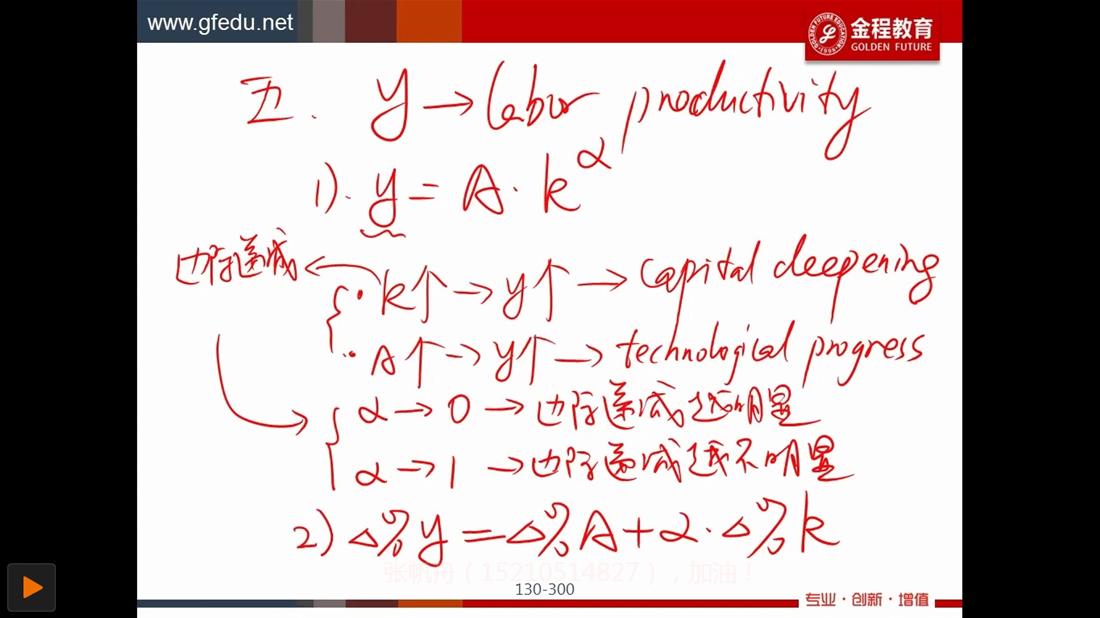 www.gfedu.net
金程教育
GOLDEN FUTURE
五. y → labor productivity
1). y = A · k^α
边际递减 ← k↑ → y↑ → capital deepening
A↑ → y↑ → technological progress
α → 0 → 边际递减越明显
α → 1 → 边际递减越不明显
2) Δ%y = Δ%A + α · Δ%k
(15210514827),加油!
130-300
专业·创新·增值